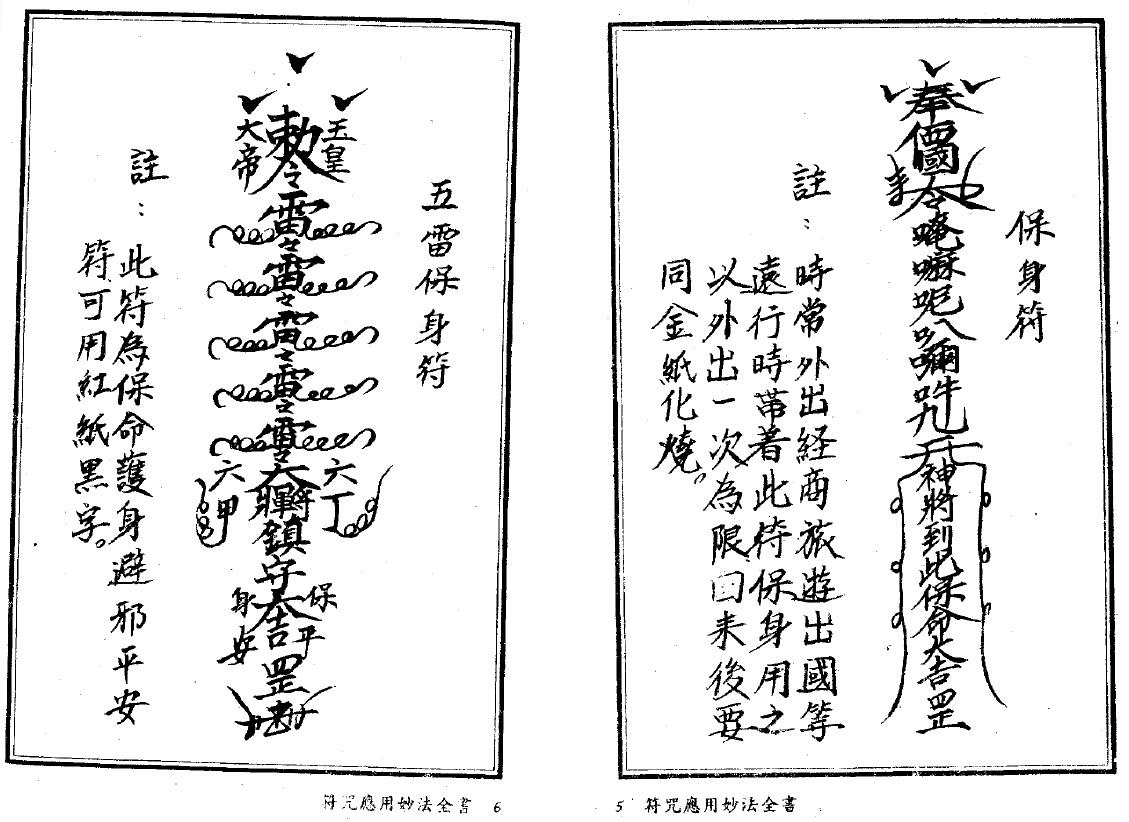 保身符
奉
國
令唵嘛呢八嘧吽
神將到此保命大吉罡
註：
時常外出経商旅遊出國等
遠行時帯着此符保身用之
以外出一次為限回来後要
同金紙化燒。
5 符咒應用妙法全書
五雷保身符
玉皇
敕令
大帝
雷令雷令雷令雷令雷令
六丁
六甲
鎮守
保平
身安
吉罡
註：
此符為保命護身避邪平安
符可用紅紙黑字。
符咒應用妙法全書 6